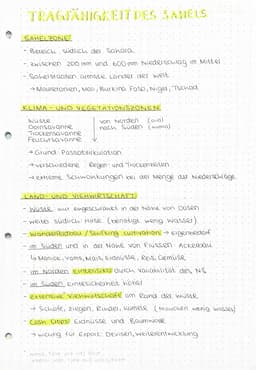 TRAGFÄHIGKEIT DES SAHELS
SAHELZONE
- Bereich südlich der Sahara
- zwischen 200 mm und 600 mm Niederschlag im Mittel
- Sahelstaaten ärmste Länder der Welt
→ Mauretanien, Mali, Burkina Faso, Niger, Tschad
KLIMA- UND VEGETATIONSZONEN
Wüste
Dornsavanne
Trockensavanne
Feuchtsavanne
von Norden (arid)
nach Süden (humid)
→ Grund: Passatzirkulation
→ verschiedene Regen- und Trockenzeiten
→ extreme Schwankungen bei der Menge der Niederschläge
LAND- UND VIEHWIRTSCHAFT
- Wüste nur eingeschränkt in der Nähe von Oasen
- weiter südlich Hirse (benötigt wenig Wasser)
- Wanderfeldbau / Shifting cultivation → Eigenbedarf
- im Süden und in der Nähe von Flüssen Ackerbau
↳ Maniok, Yams, Mais, Erdnüsse, Reis, Gemüse
- im Norden Ernterisiko durch Variabilität des NS
- im Süden Erntesicherheit höher
- extensive Viehwirtschaft am Rand der Wüste
→ Schafe, Ziegen, Rinder, Kamele (brauchen wenig Wasser)
- Cash Crops: Erdnüsse und Baumwolle
→ wichtig für Export: Devisen, Weiterentwicklung